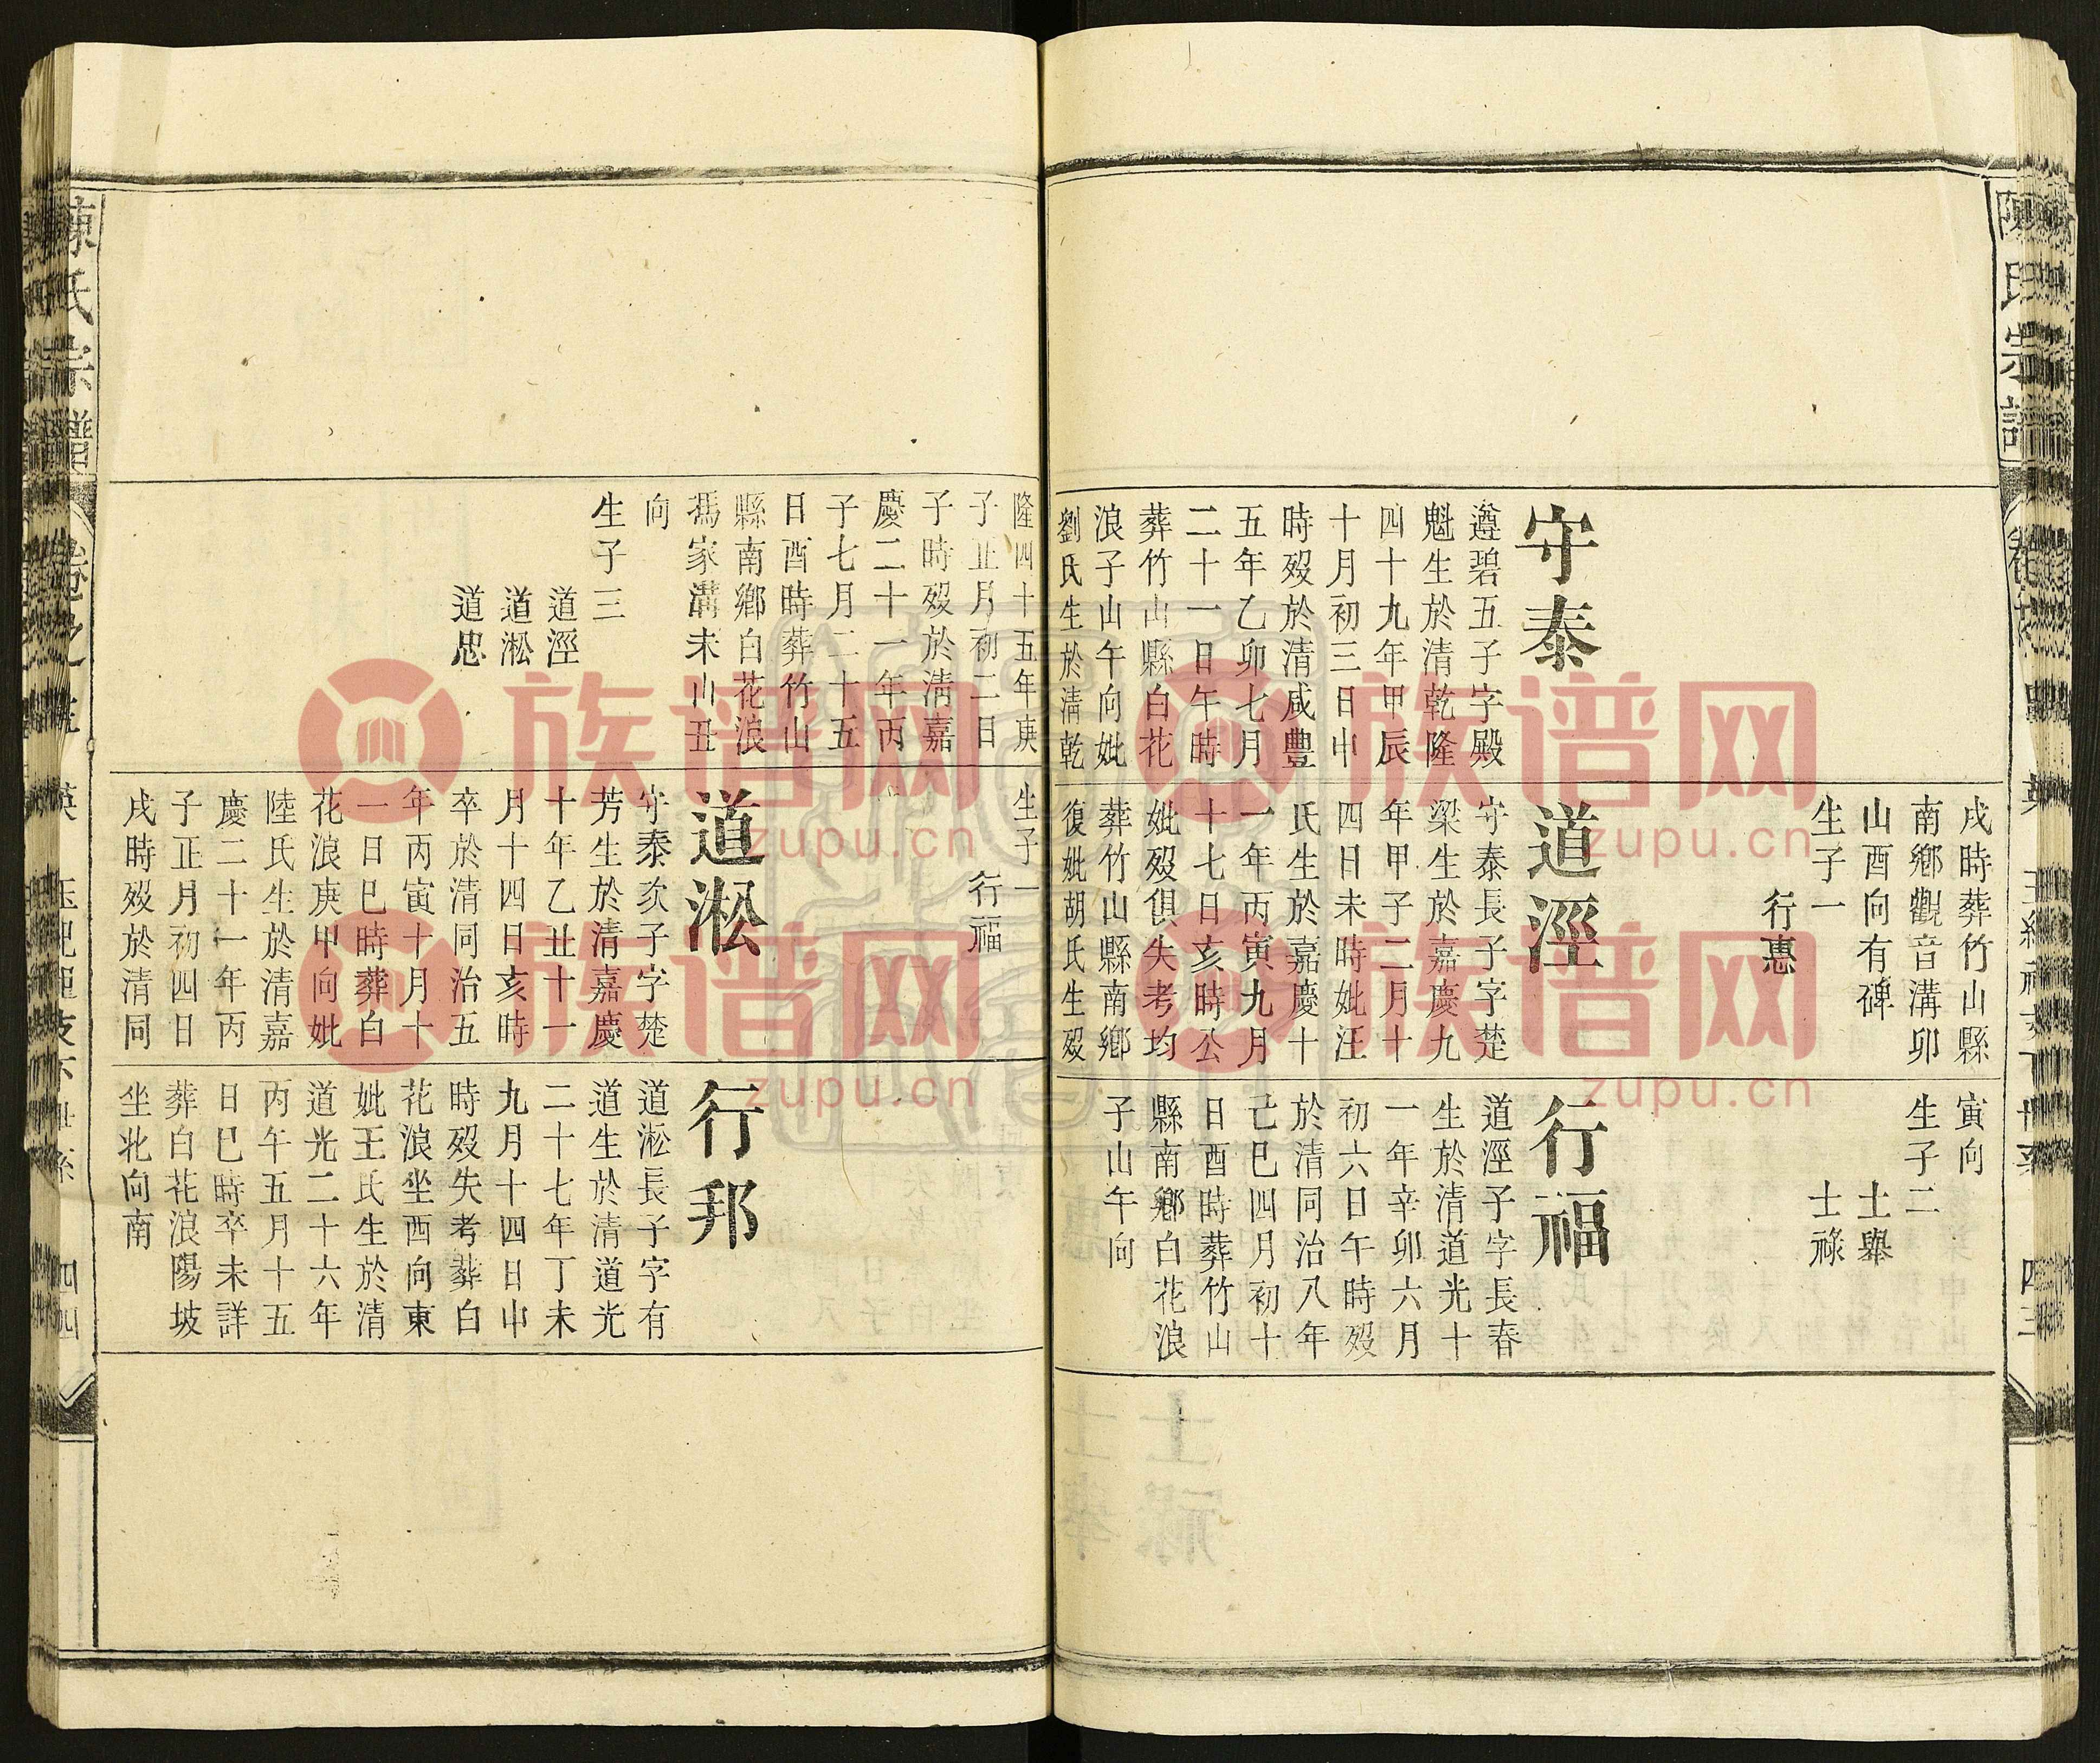 陳氏宗譜
守泰
遵碧五子字殿
魁生於清乾隆
四十九年甲辰
十月初三日申
時殁於清咸豐
五年乙卯七月
二十一日午時
葬竹山縣白花
浪子山午向妣
劉氏生於清乾
戌時葬竹山縣
南鄉觀音溝卯
山酉向有碑
生子一
行惠
道淫
守泰長子字楚
梁生於嘉慶九
年甲子二月十
四日未時妣汪
氏生於嘉慶十
一年丙寅九月
十七日亥時公
妣殁俱失考均
葬竹山縣南鄉
復妣胡氏生殁
寅向
生子二
士舉
士祿
行福
道淫子字長春
生於清道光十
一年辛卯六月
初六日午時殁
於清同治八年
己巳四月初十
日酉時葬竹山
縣南鄉白花浪
子山午向
隆四十五年庚
子正月初二日
子時殁於清嘉
慶二十一年丙
子七月二十五
日酉時葬竹山
縣南鄉白花浪
馮家溝未山丑
向
生子三
道淫
道淞
道忠
生子一
行福
道淞
守泰次子字楚
芳生於清嘉慶
十年乙丑十一
月十四日亥時
卒於清同治五
年丙寅十月十
一日巳時葬白
花浪庚甲向妣
陸氏生於清嘉
慶二十一年丙
子正月初四日
戌時殁於清同
行邦
道淞長子字有
道生於清道光
二十七年丁未
九月十四日申
時殁失考葬白
花浪坐西向東
妣王氏生於清
道光二十六年
丙午五月十五
日巳時卒未詳
葬白花浪陽坡
坐北向南
陳氏宗譜
四四
族谱网
zupu.cn
族谱网
zupu.cn
族谱网
zupu.cn
族谱网
zupu.cn